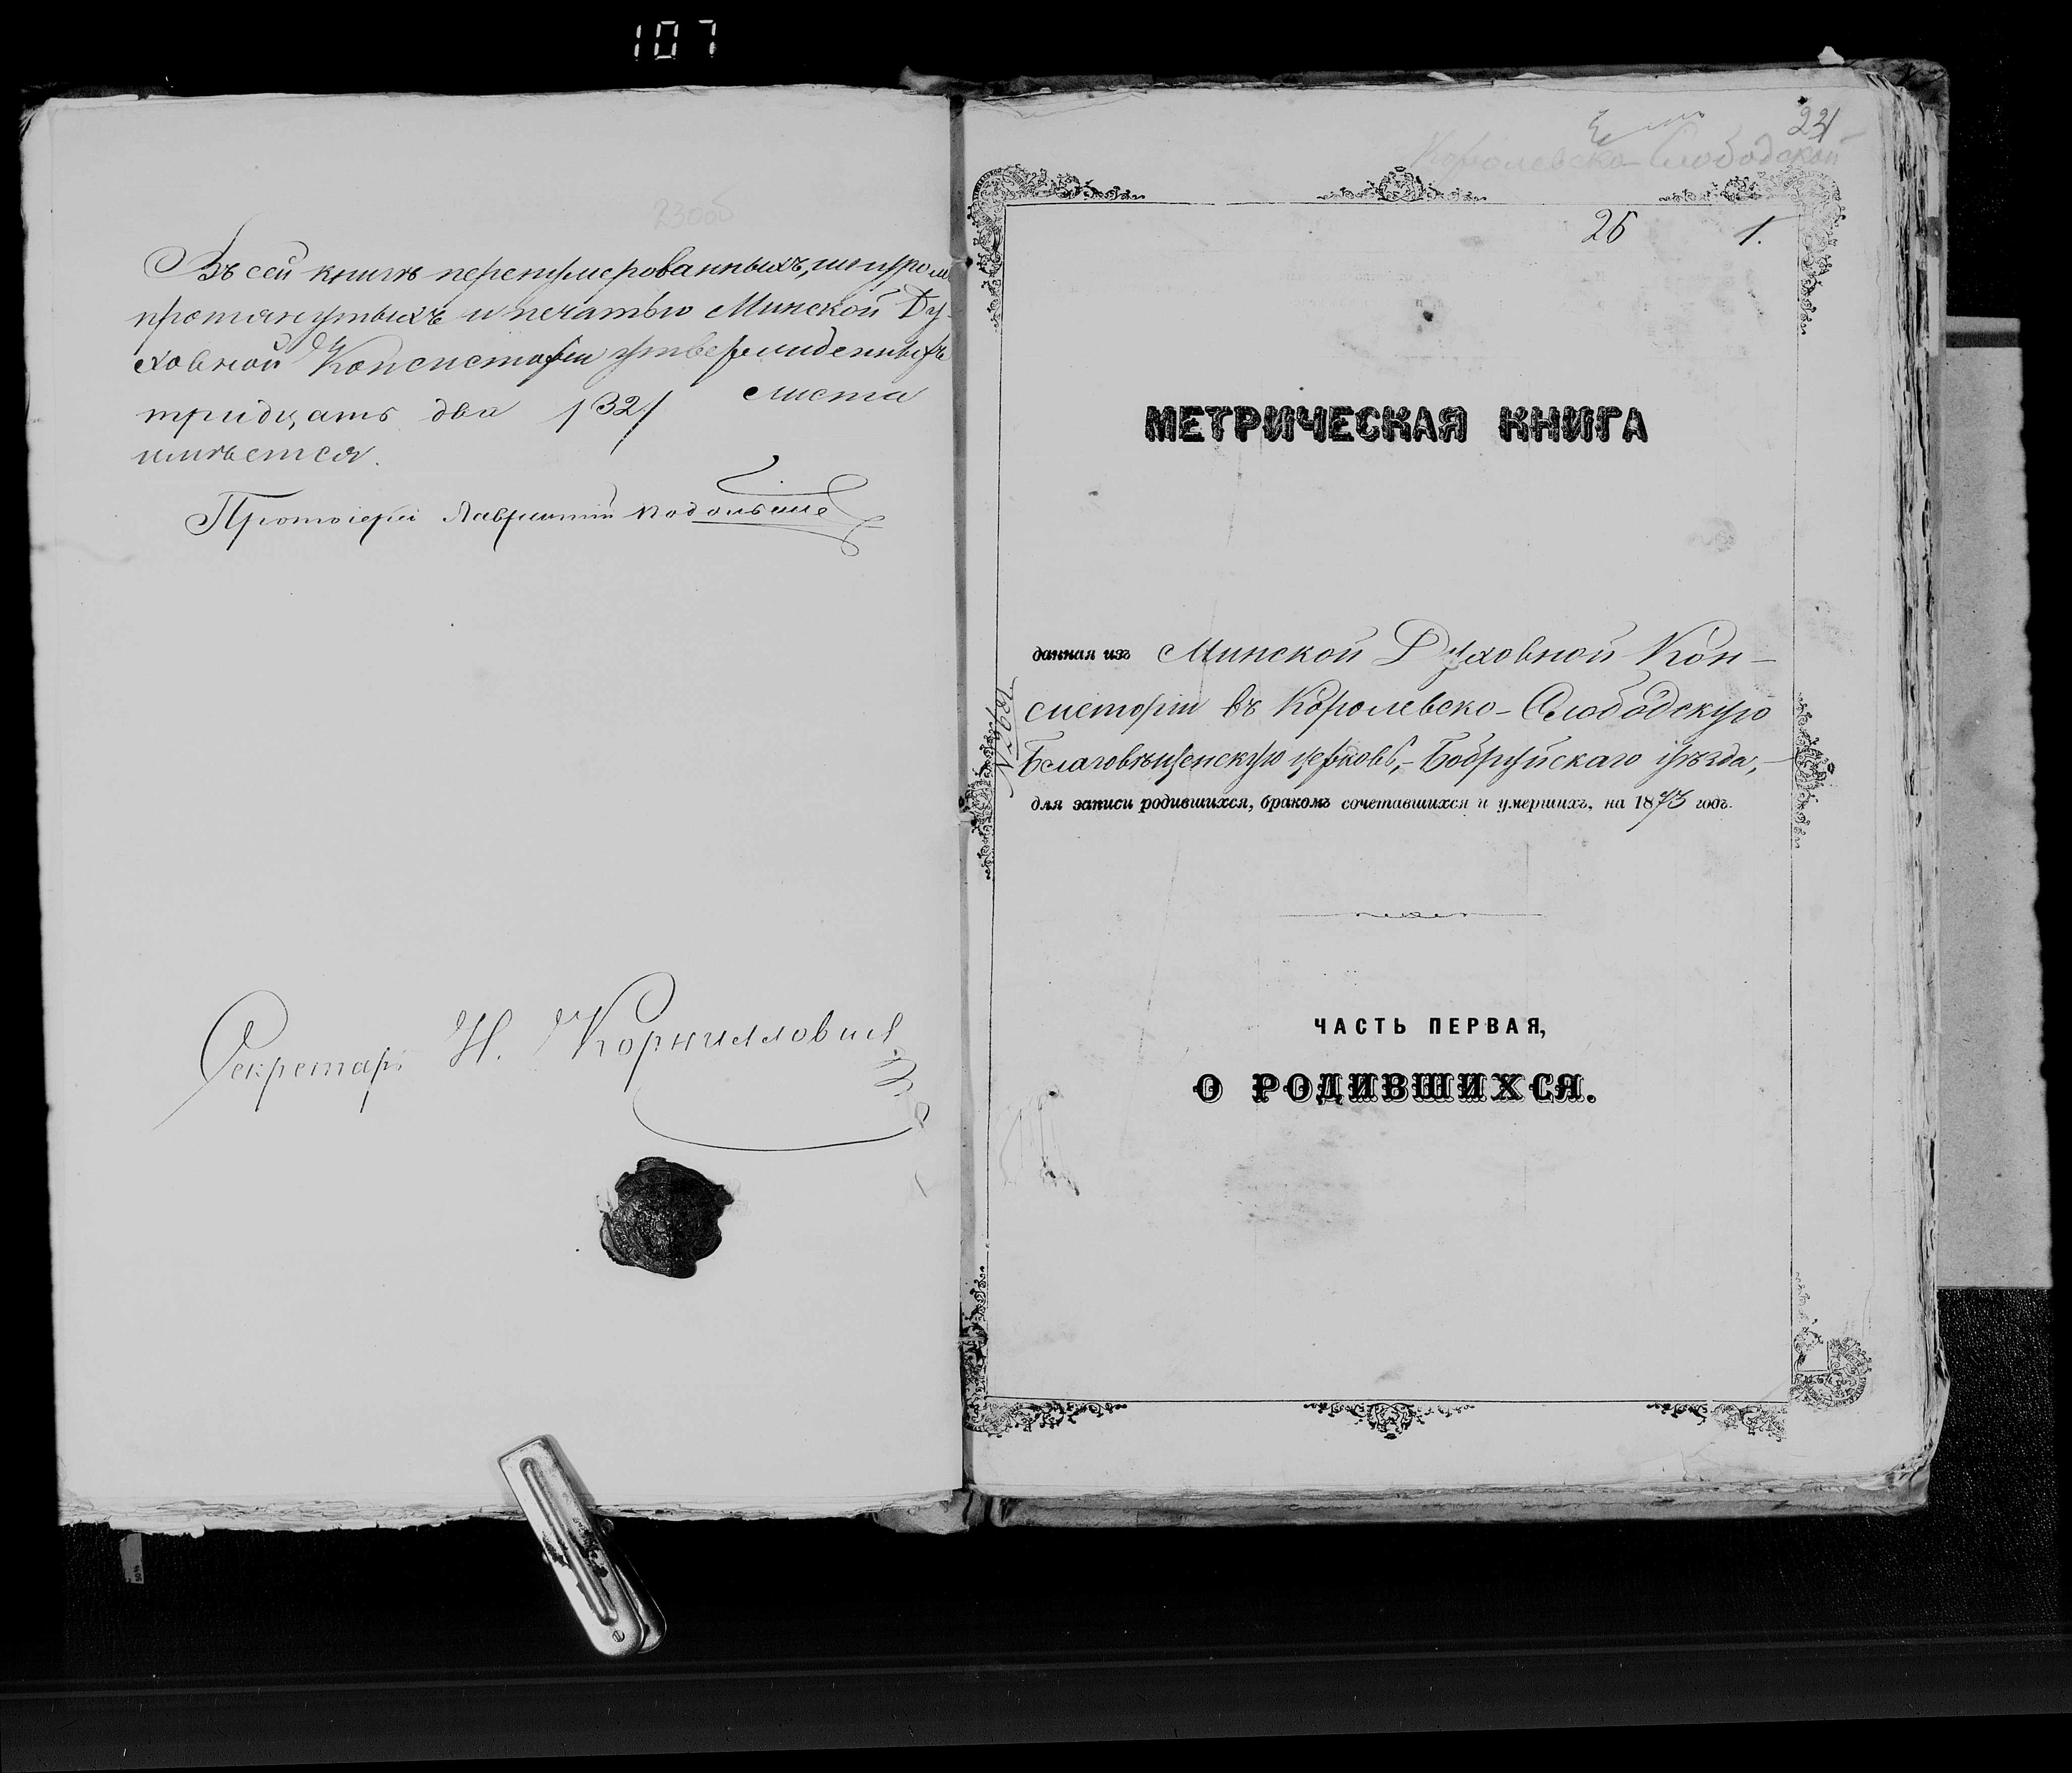 107
230об
Въ сей книгѣ перенумерованныхъ, шнуромъ
протянутыхъ и печатью Минской Ду-
ховной Консисторіи утвержденныхъ
тридцать два /32/ листа
имѣется.
Протоіерей Лаврентій
Секретарь Н. Корнилловичъ
Королевско-Слободской
26 1.
МЕТРИЧЕСКАЯ КНИГА
данная изъ Минской Духовной Кон-
систоріи въ Королевско-Слободскую
Благовѣщенскую церковь,- Бобруйскаго уѣзда,-
для записи родившихся, бракомъ сочетавшихся и умершихъ, на 1873 годъ.
ЧАСТЬ ПЕРВАЯ,
О РОДИВШИХСЯ.